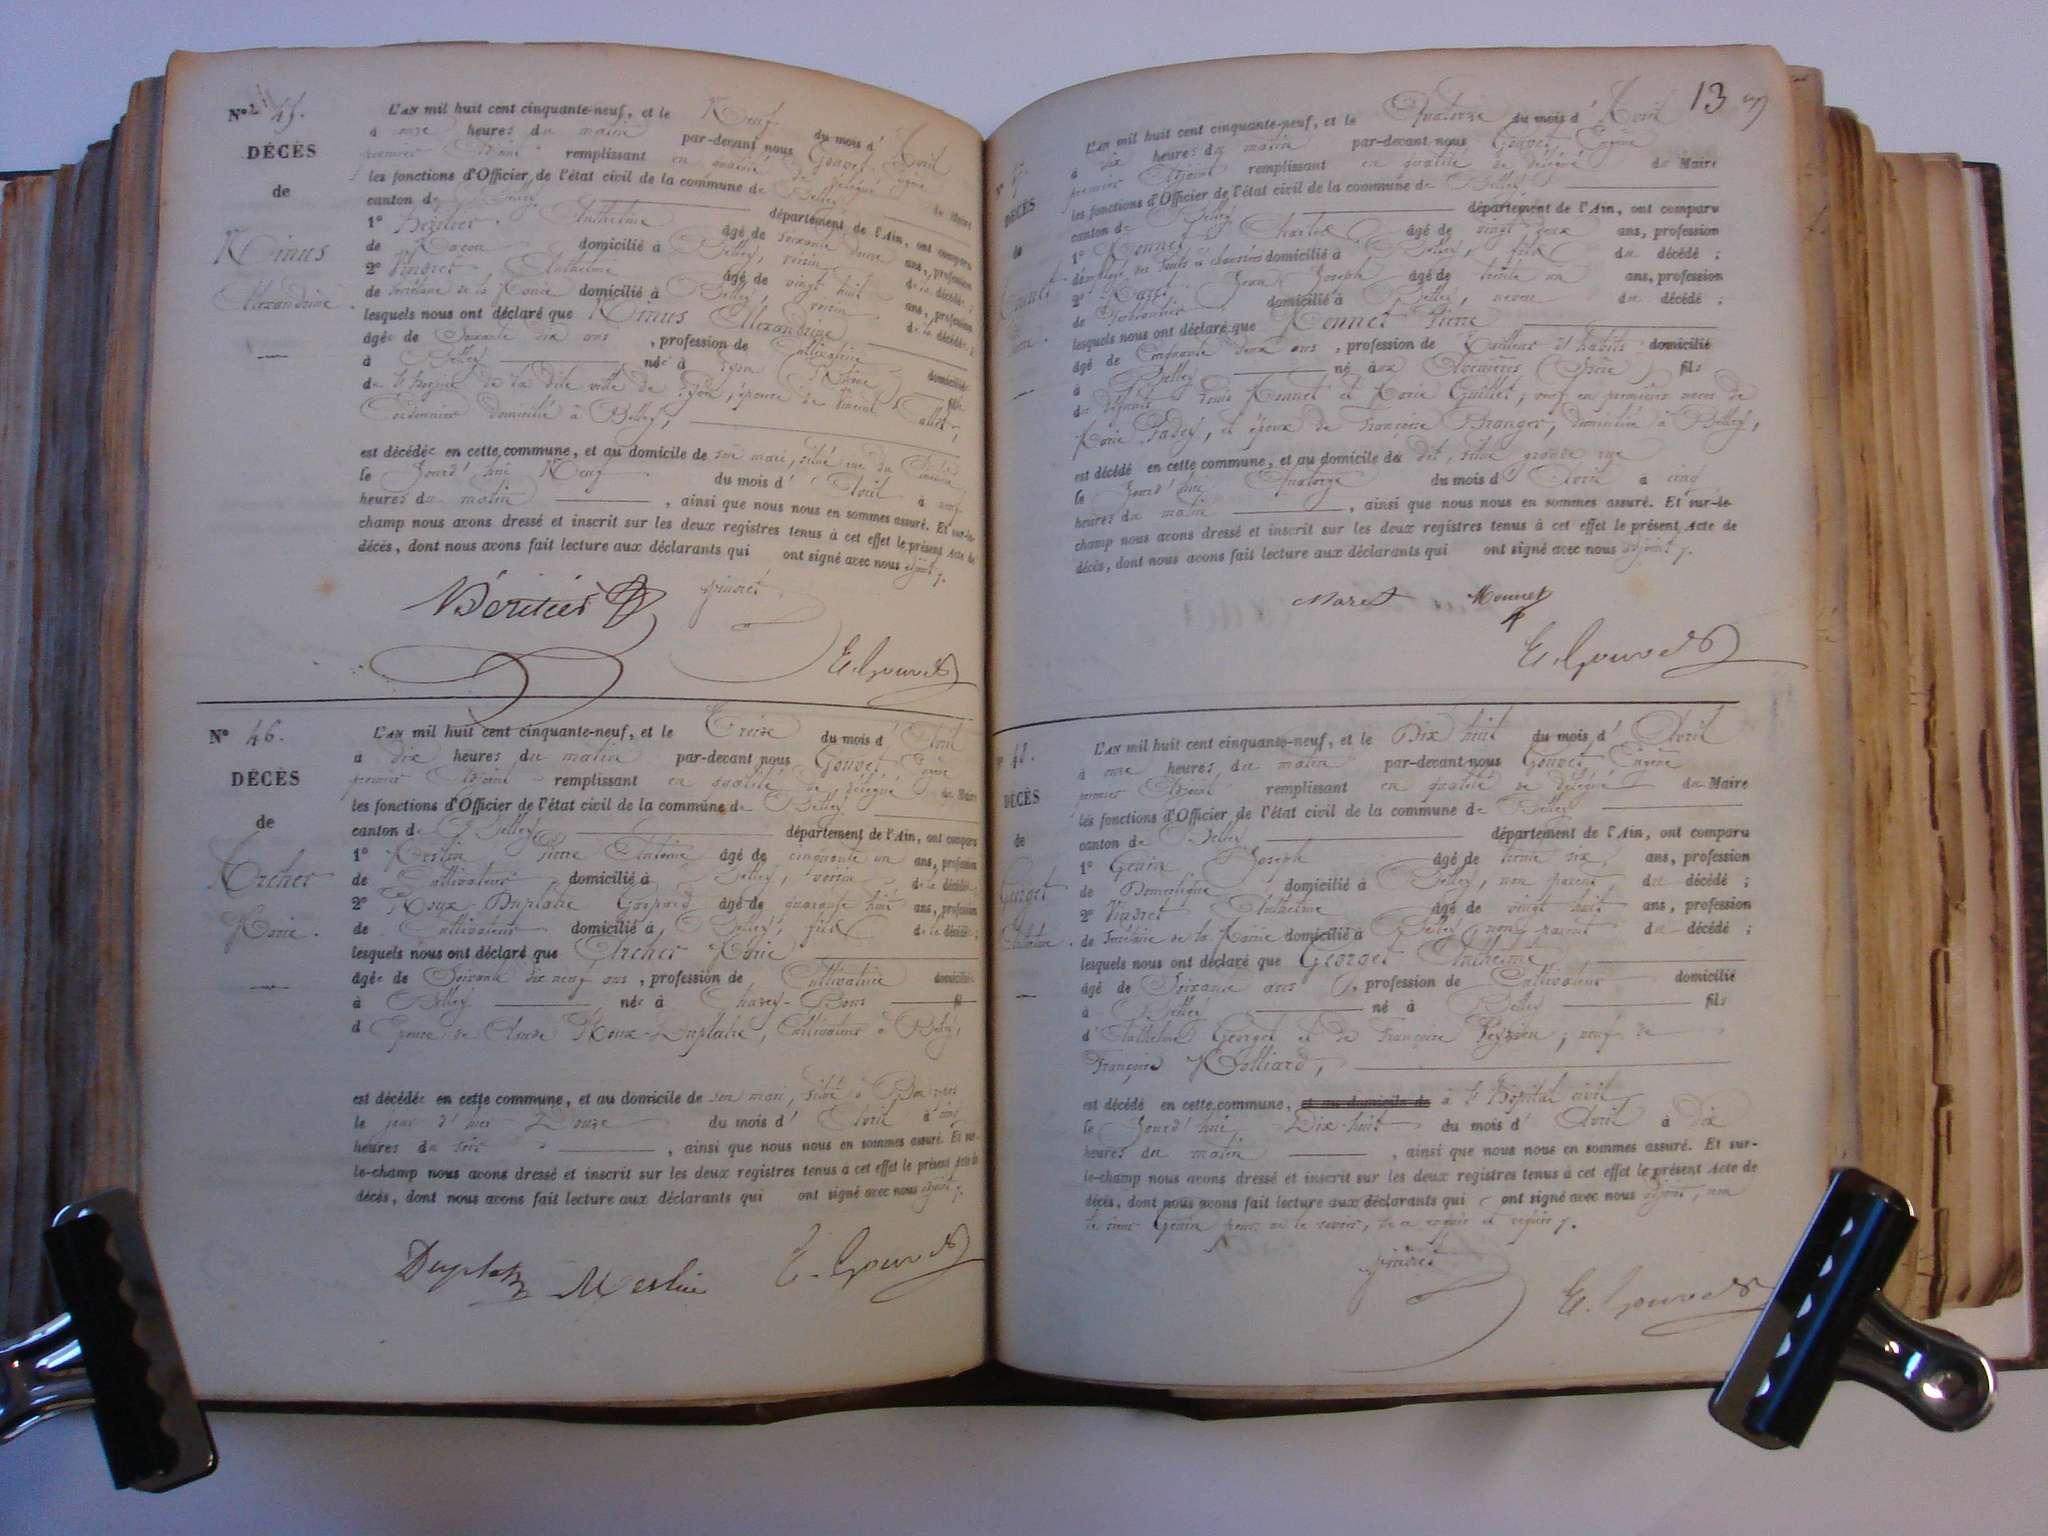 N° 45.
DÉCÈS
de
Minus
Alexandrine.
L'AN mil huit cent cinquante-neuf, et le Neuf du mois d'Avril
à onze heures du matin par-devant nous Gouvet Eugène
premier Adjoint remplissant en qualité de délégué du Maire
les fonctions d'Officier de l'état civil de la commune de Belley
canton de Belley département de l'Ain, ont comparu
1° Héritier Anthelme âgé de soixante douze ans, profession
de Maçon domicilié à Belley, voisin de la décédée;
2° Vinoret Anthelme âgé de vingt huit ans, profession
de Secrétaire de la Mairie domicilié à Belley, voisin de la décédée;
lesquels nous ont déclaré que Minus Alexandrine
âgée de Soixante dix ans, profession de Cultivatrice domiciliée
à Belley née à Lyon (Rhône) fille
de l'hospice de la dite ville de Lyon, épouse de Vincent Callet,
Cordonnier domicilié à Belley,
est décédée en cette commune, et au domicile de son mari, situé rue du
le Jourd'hui Neuf du mois d'Avril à neuf
heures du matin, ainsi que nous nous en sommes assuré. Et sur-le-
champ nous avons dressé et inscrit sur les deux registres tenus à cet effet le présent Acte de
décès, dont nous avons fait lecture aux déclarants qui ont signé avec nous adjoint.
Héritier E. Gouvet
N° 46.
DÉCÈS
de
Archer
Marie.
L'AN mil huit cent cinquante-neuf, et le Treize du mois d'Avril
à dix heures du matin par-devant nous Gouvet Eugène
premier Adjoint remplissant en qualité de délégué du Maire
les fonctions d'Officier de l'état civil de la commune de Belley
canton de Belley département de l'Ain, ont comparu
1° Merlin Pierre Antoine âgé de cinquante un ans, profession
de Cultivateur domicilié à Belley, voisin de la décédée;
2° Roux Duplatre Gaspard âgé de quarante huit ans, profession
de Cultivateur domicilié à Belley, fils de la décédée;
lesquels nous ont déclaré que Archer Marie
âgée de Soixante dix neuf ans, profession de Cultivatrice domiciliée
à Belley née à Chazey-Bons fil
d Epouse de Claude Roux-Duplatre, Cultivateur à Belley,
est décédée en cette commune, et au domicile de son mari, situé à
le jour d'hier Douze du mois d'Avril à cinq
heures du soir, ainsi que nous nous en sommes assuré. Et sur-
le-champ nous avons dressé et inscrit sur les deux registres tenus à cet effet le présent Acte de
décès, dont nous avons fait lecture aux déclarants qui ont signé avec nous adjoint.
Merlin E. Gouvet
13
DÉCÈS
de
L'AN mil huit cent cinquante-neuf, et le Quatorze du mois d'Avril
à dix heures du matin par-devant nous Gouvet Eugène
premier Adjoint remplissant en qualité de délégué du Maire
les fonctions d'Officier de l'état civil de la commune de Belley
canton de Belley département de l'Ain, ont comparu
1° Monnet Charles âgé de vingt deux ans, profession
d'employé des Ponts et chaussées domicilié à Belley, fils du décédé;
2° Maret Jean Joseph âgé de trente un ans, profession
de Ferblantier domicilié à Belley, neveu du décédé;
lesquels nous ont déclaré que Monnet Pierre
âgé de Cinquante deux ans, profession de Tailleur d'habits domicilié
à Belley né aux Avenières (Isère) fils
de défunts Louis Monnet et Marie Guillet, veuf en premières noces de
Marie Fadey, et époux de Françoise Branger, domiciliée à Belley,
est décédé en cette commune, et au domicile du dit, situé grande rue
le Jourd'hui Quatorze du mois d'Avril à cinq
heures du matin, ainsi que nous nous en sommes assuré. Et sur-le-
champ nous avons dressé et inscrit sur les deux registres tenus à cet effet le présent Acte de
décès, dont nous avons fait lecture aux déclarants qui ont signé avec nous adjoint.
Maret Monnet
E. Gouvet
48.
DÉCÈS
de
Georget
Anthelme.
L'AN mil huit cent cinquante-neuf, et le Dix huit du mois d'Avril
à onze heures du matin par-devant nous Gouvet Eugène
premier Adjoint remplissant en qualité de délégué du Maire
les fonctions d'Officier de l'état civil de la commune de Belley
canton de Belley département de l'Ain, ont comparu
1° Genin Joseph âgé de trente six ans, profession
de Domestique domicilié à Belley, non parent du décédé;
2° Vinoret Anthelme âgé de vingt huit ans, profession
de Secrétaire de la Mairie domicilié à Belley, non parent du décédé;
lesquels nous ont déclaré que Georget Anthelme
âgé de Soixante ans, profession de Cultivateur domicilié
à Belley né à Belley fils
d'Anthelme Georget et de Françoise Peysson; veuf de
Françoise Rolliard,
est décédé en cette commune, et au domicile de à l'hôpital civil
le Jourd'hui Dix-huit du mois d'Avril à dix
heures du matin, ainsi que nous nous en sommes assuré. Et sur-
le-champ nous avons dressé et inscrit sur les deux registres tenus à cet effet le présent Acte de
décès, dont nous avons fait lecture aux déclarants qui ont signé avec nous adjoint, non
le sieur Genin pour ne le savoir, de ce enquis et requis.
E. Gouvet